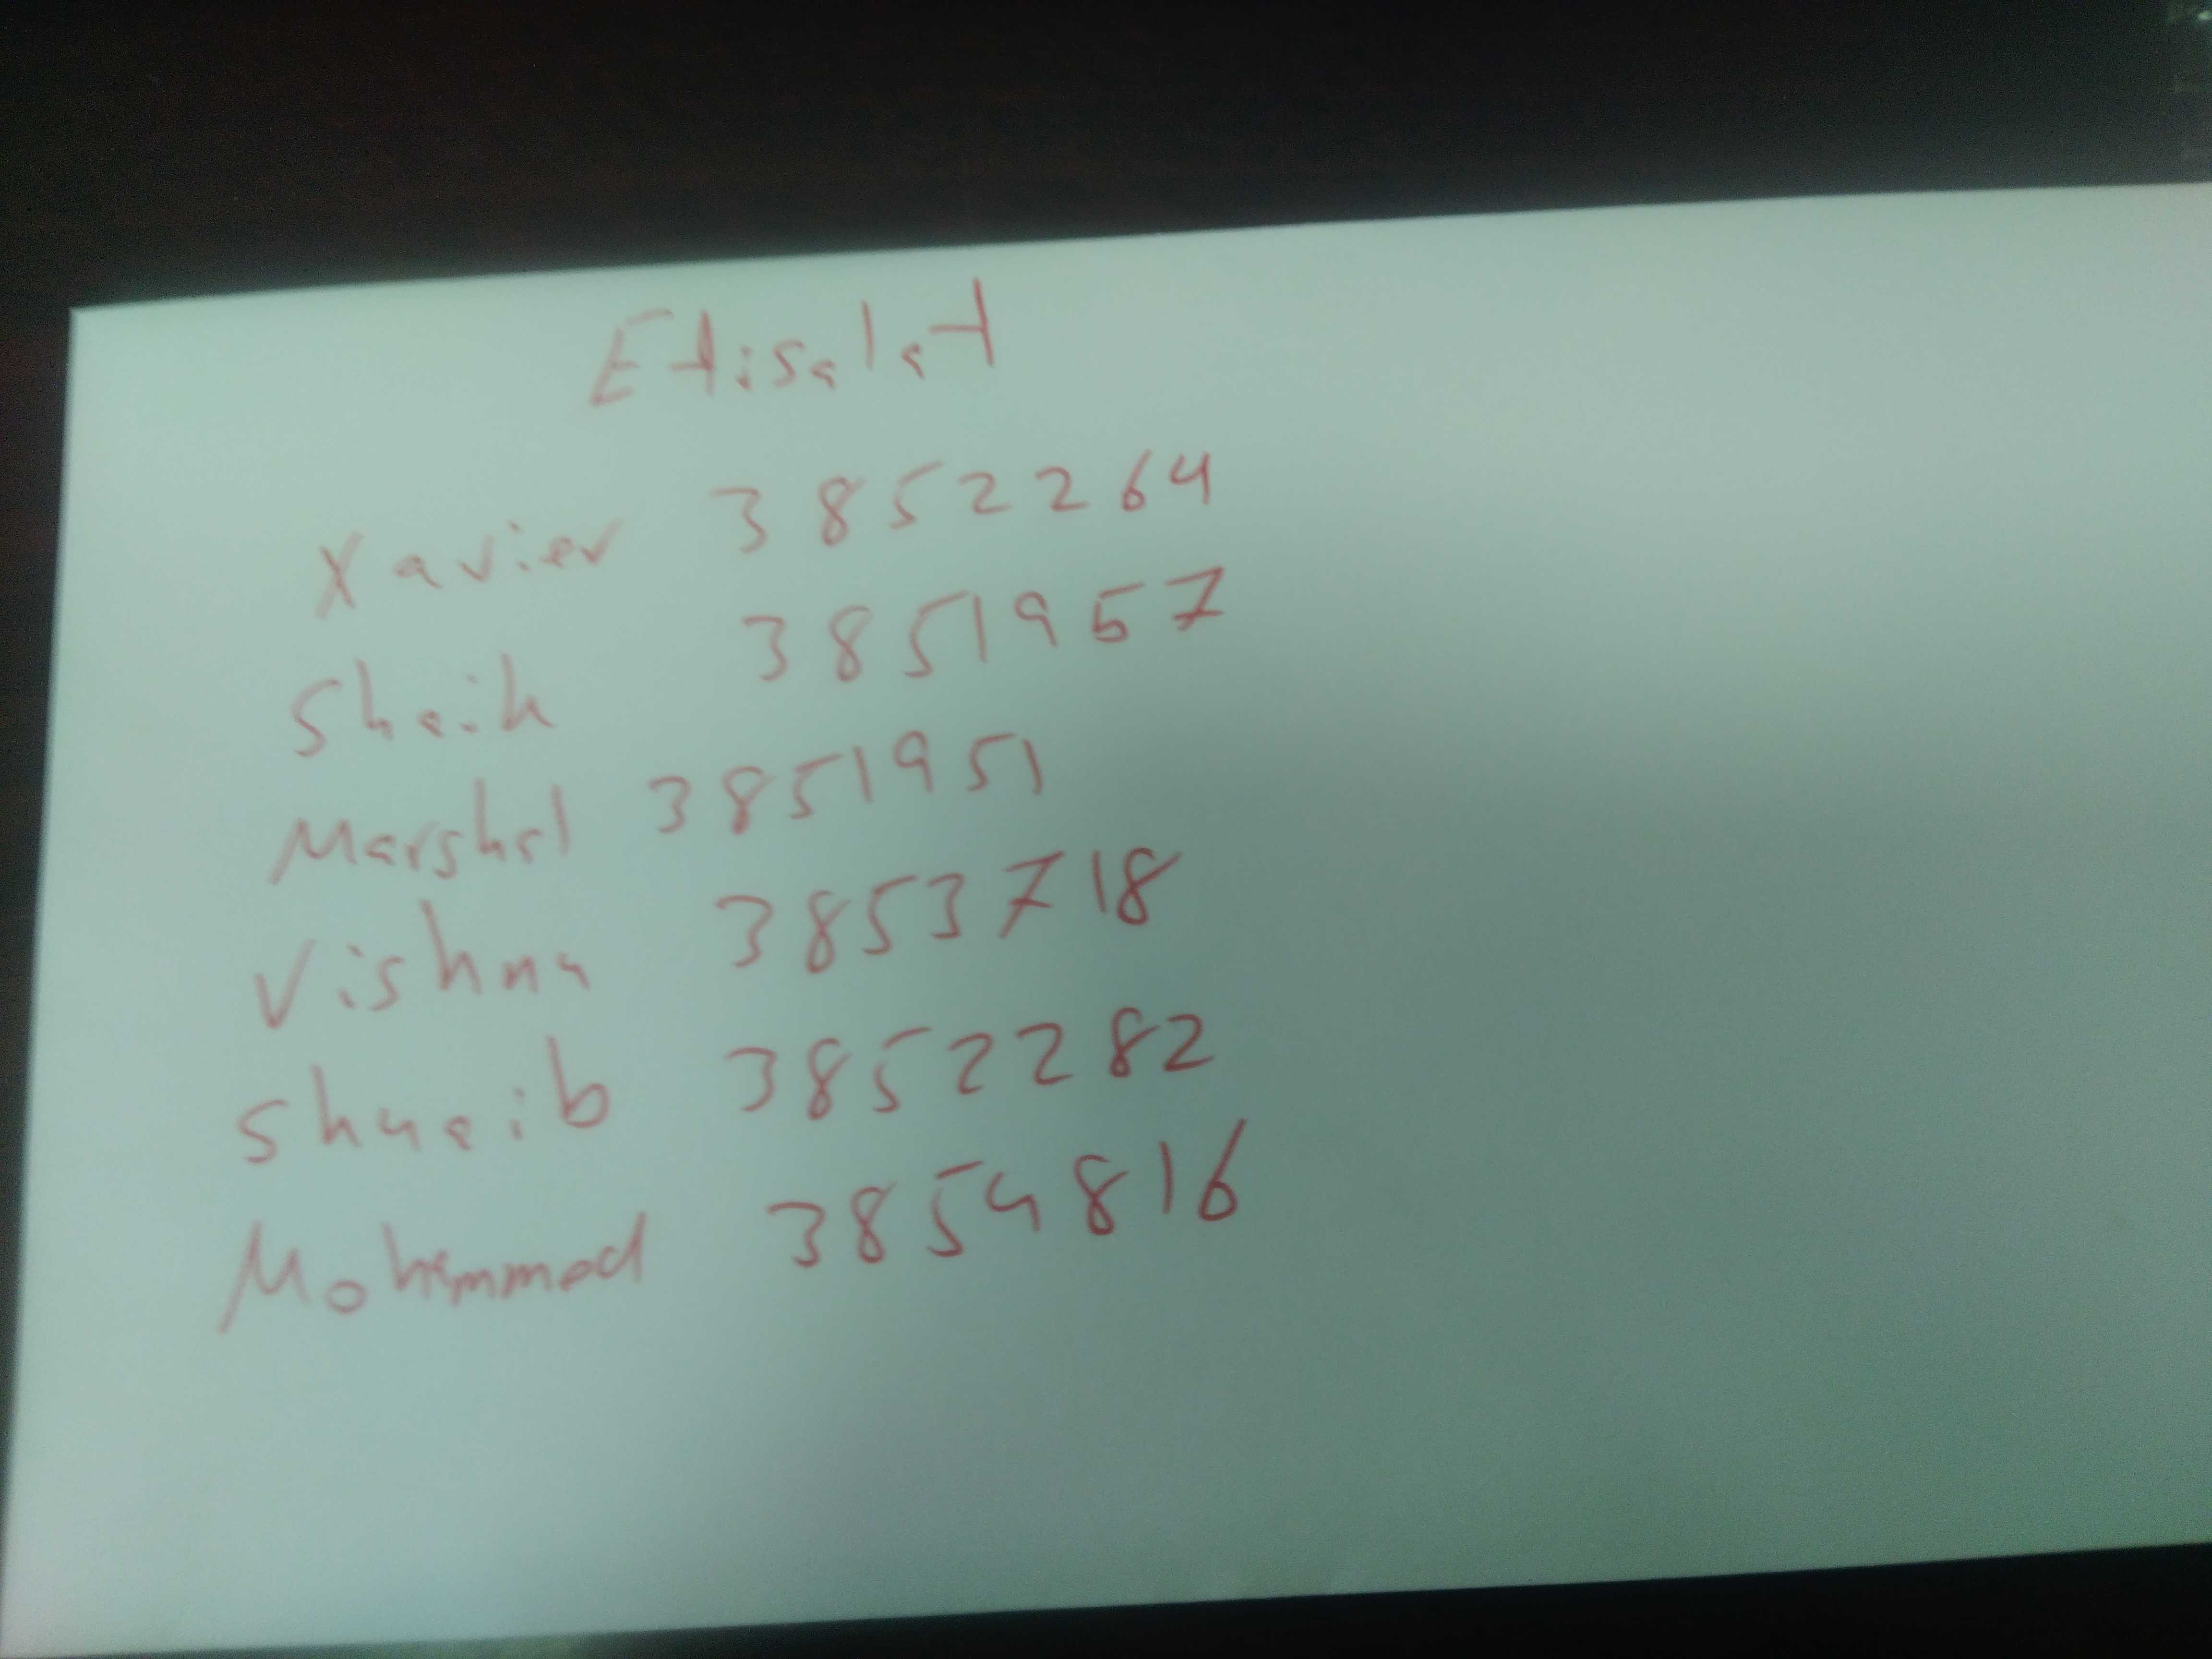 Etisalat
Xavier 3852264
Shaik 3851957
Marshal 3851951
Vishnu 3853718
Shuaib 3852282
Mohammad 3854816